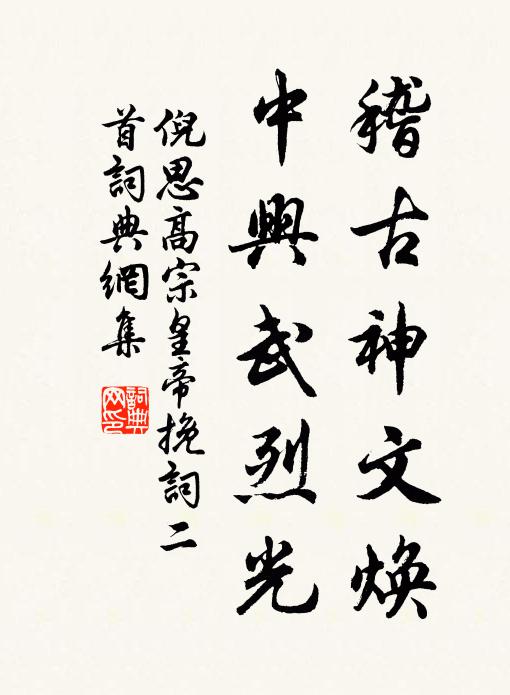 稽古神文煥
中興武烈光
倪思高宗皇帝挽詞二
首詞典網集
詞典
网印